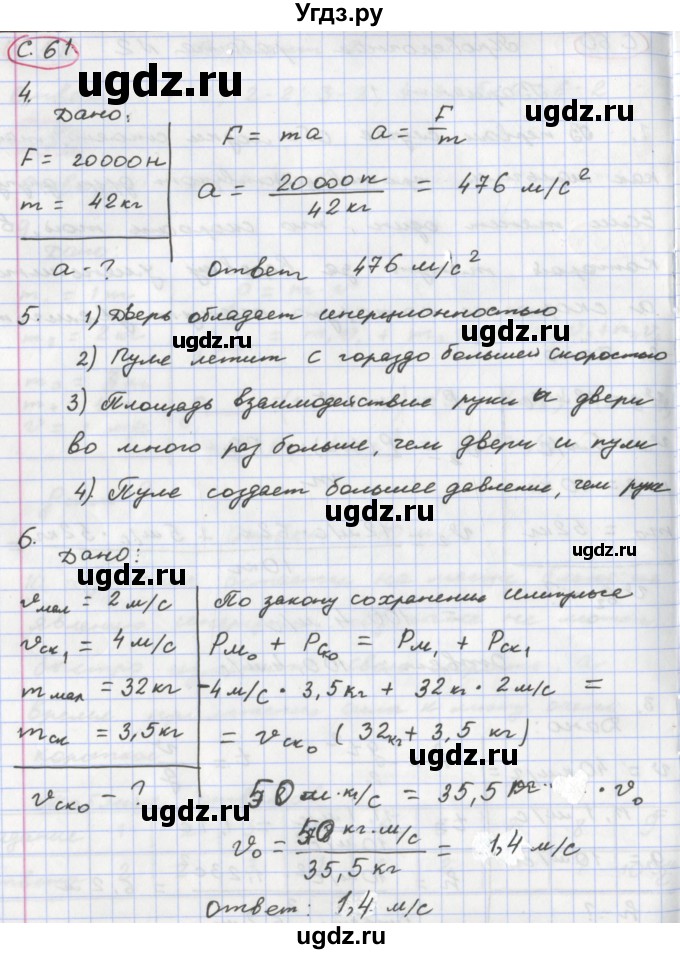 Угдз.ру
С. 61
ugdz.ru
4.
Дано:
F = 20000 н
m = 42 кг
a - ?
F = ma     a = F/m
ugdz.ru
a = 20 000 н / 42 кг = 476 м/с²
ugdz.ru
ответ 476 м/с²
5. 1) Дверь обладает инерционностью
ugdz.ru
ugdz.ru
2) Пуля летит с гораздо большей скоростью
3) Площадь взаимодействия руки и двери
во много раз больше, чем двери и пули
4) Пуля создает большее давление, чем рука
ugdz.ru
6.
Дано:
ugdz.ru
ugdz.ru
vмал = 2 м/с
vск₁ = 4 м/с
mмал = 32 кг
mск = 3,5 кг
vск0 - ?
По закону сохранения импульса
Pм₀ + Pск0 = Pм₁ + Pск₁
ugdz.ru
-4 м/с · 3,5 кг + 32 кг · 2 м/с =
= vск₀ (32 кг + 3,5 кг)
ugdz.ru
ugdz.ru
50 м·кг/с = 35,5 кг · v₀
v₀ = 50 кг·м/с / 35,5 кг = 1,4 м/с
ugdz.ru
ugdz.ru
ответ: 1,4 м/с
ugdz.ru